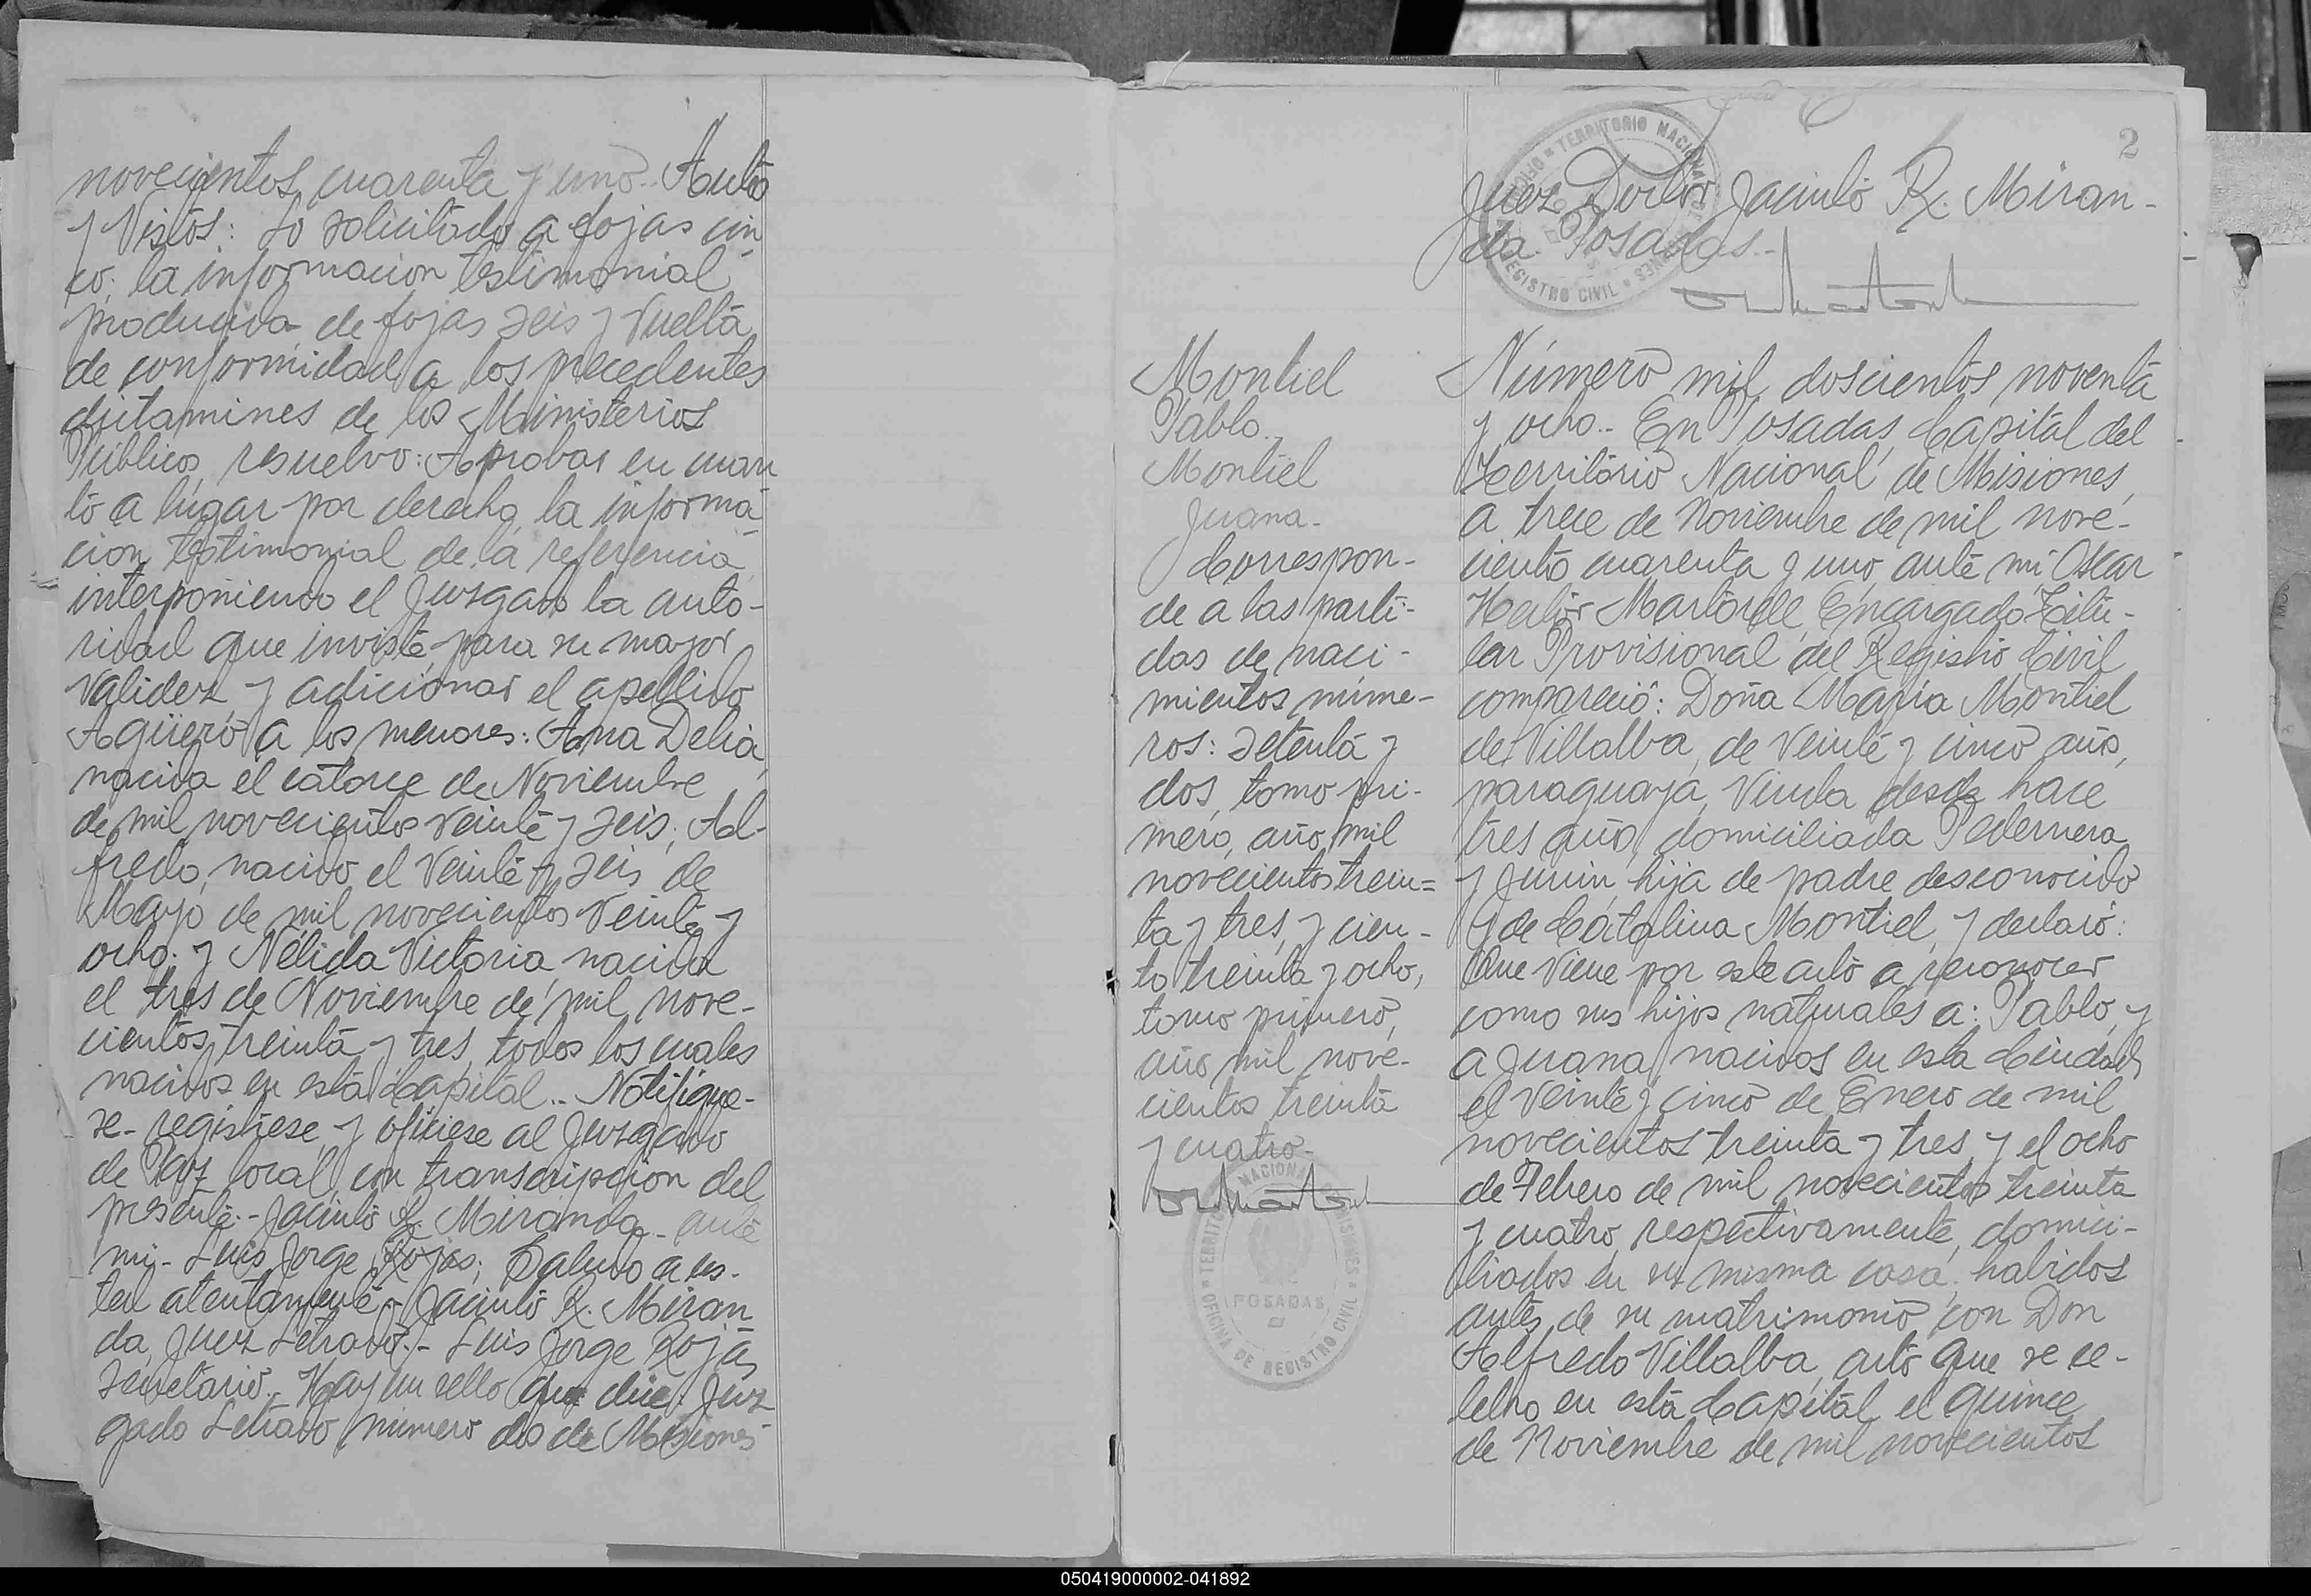 novecientos cuarenta y uno.. Auto
y Vistos: Lo solicitado a fojas cin
co; la informacion testimonial
producida de fojas seis y vuelta,
de conformidad a los precedentes
dictamines de los Ministerios
Públicos, resuelvo: Aprobar en cuan
to a lugar por derecho, la informa
cion testimonial de la referencia
interponiendo el Juzgado la auto-
ridad que inviste, para su mayor
validez, y adicionar el apellido
Agüero a los menores: Ana Delia,
nacida el catorce de Noviembre
de mil novecientos veinte y seis; Al-
fredo, nacido el veinte y seis de
Mayo de mil novecientos veinte y
ocho; y Nélida Victoria nacida
el tres de Noviembre de mil nove-
cientos treinta y tres, todos los cuales
nacidos en esta Capital.. Notifique-
se- registrese, y ofíciese al Juzgado
de Paz local, con transcripcion del
presente.- Jacinto R. Miranda- ante
mi- Luis Jorge Rojas; Saludo a us-
ted atentamente.- Jacinto R. Miran
da, Juez Letrado.- Luis Jorge Rojas
secretario.- Hay un sello que dice: Juz
gado Letrado número dos de Misiones
2
Juez Doctor Jacinto R. Miran-
da. Posadas.-
TERRITORIO NACIONAL
REGISTRO CIVIL
Montiel
Pablo.
Montiel
Juana-
Correspon-
de a las parti-
das de naci-
mientos núme-
ros: setenta y
dos, tomo pri-
mero, año mil
novecientos trein=
ta y tres, y cien-
to treinta y ocho,
tomo primero,
año mil nove-
cientos treinta
y cuatro-
TERRITORIO NACIONAL DE MISIONES
POSADAS
OFICINA DE REGISTRO CIVIL
Número mil doscientos noventa
y ocho.- En Posadas, Capital del
Territorio Nacional de Misiones,
a trece de Noviembre de mil nove-
ciento cuarenta y uno, ante mi Oscar
Hector Martorell, Encargado Titu-
lar Provisional del Registro Civil
compareció: Doña María Montiel
de Villalba, de veinte y cinco años,
paraguaya, viuda desde hace
tres años, domiciliada Pedernera
y Junin, hija de padre desconocido
y de Catalina Montiel, y declaró:
Que viene por este acto a reconocer
como sus hijos naturales a: Pablo, y
a Juana, nacidos en esta Ciudad,
el veinte y cinco de Enero de mil
novecientos treinta y tres, y el ocho
de Febrero de mil novecientos treinta
y cuatro, respectivamente, domici-
liados en su misma casa, habidos
antes de su matrimonio con Don
Alfredo Villalba, acto que se ce-
lebró en esta Capital, el quince
de Noviembre de mil novecientos
050419000002-041892